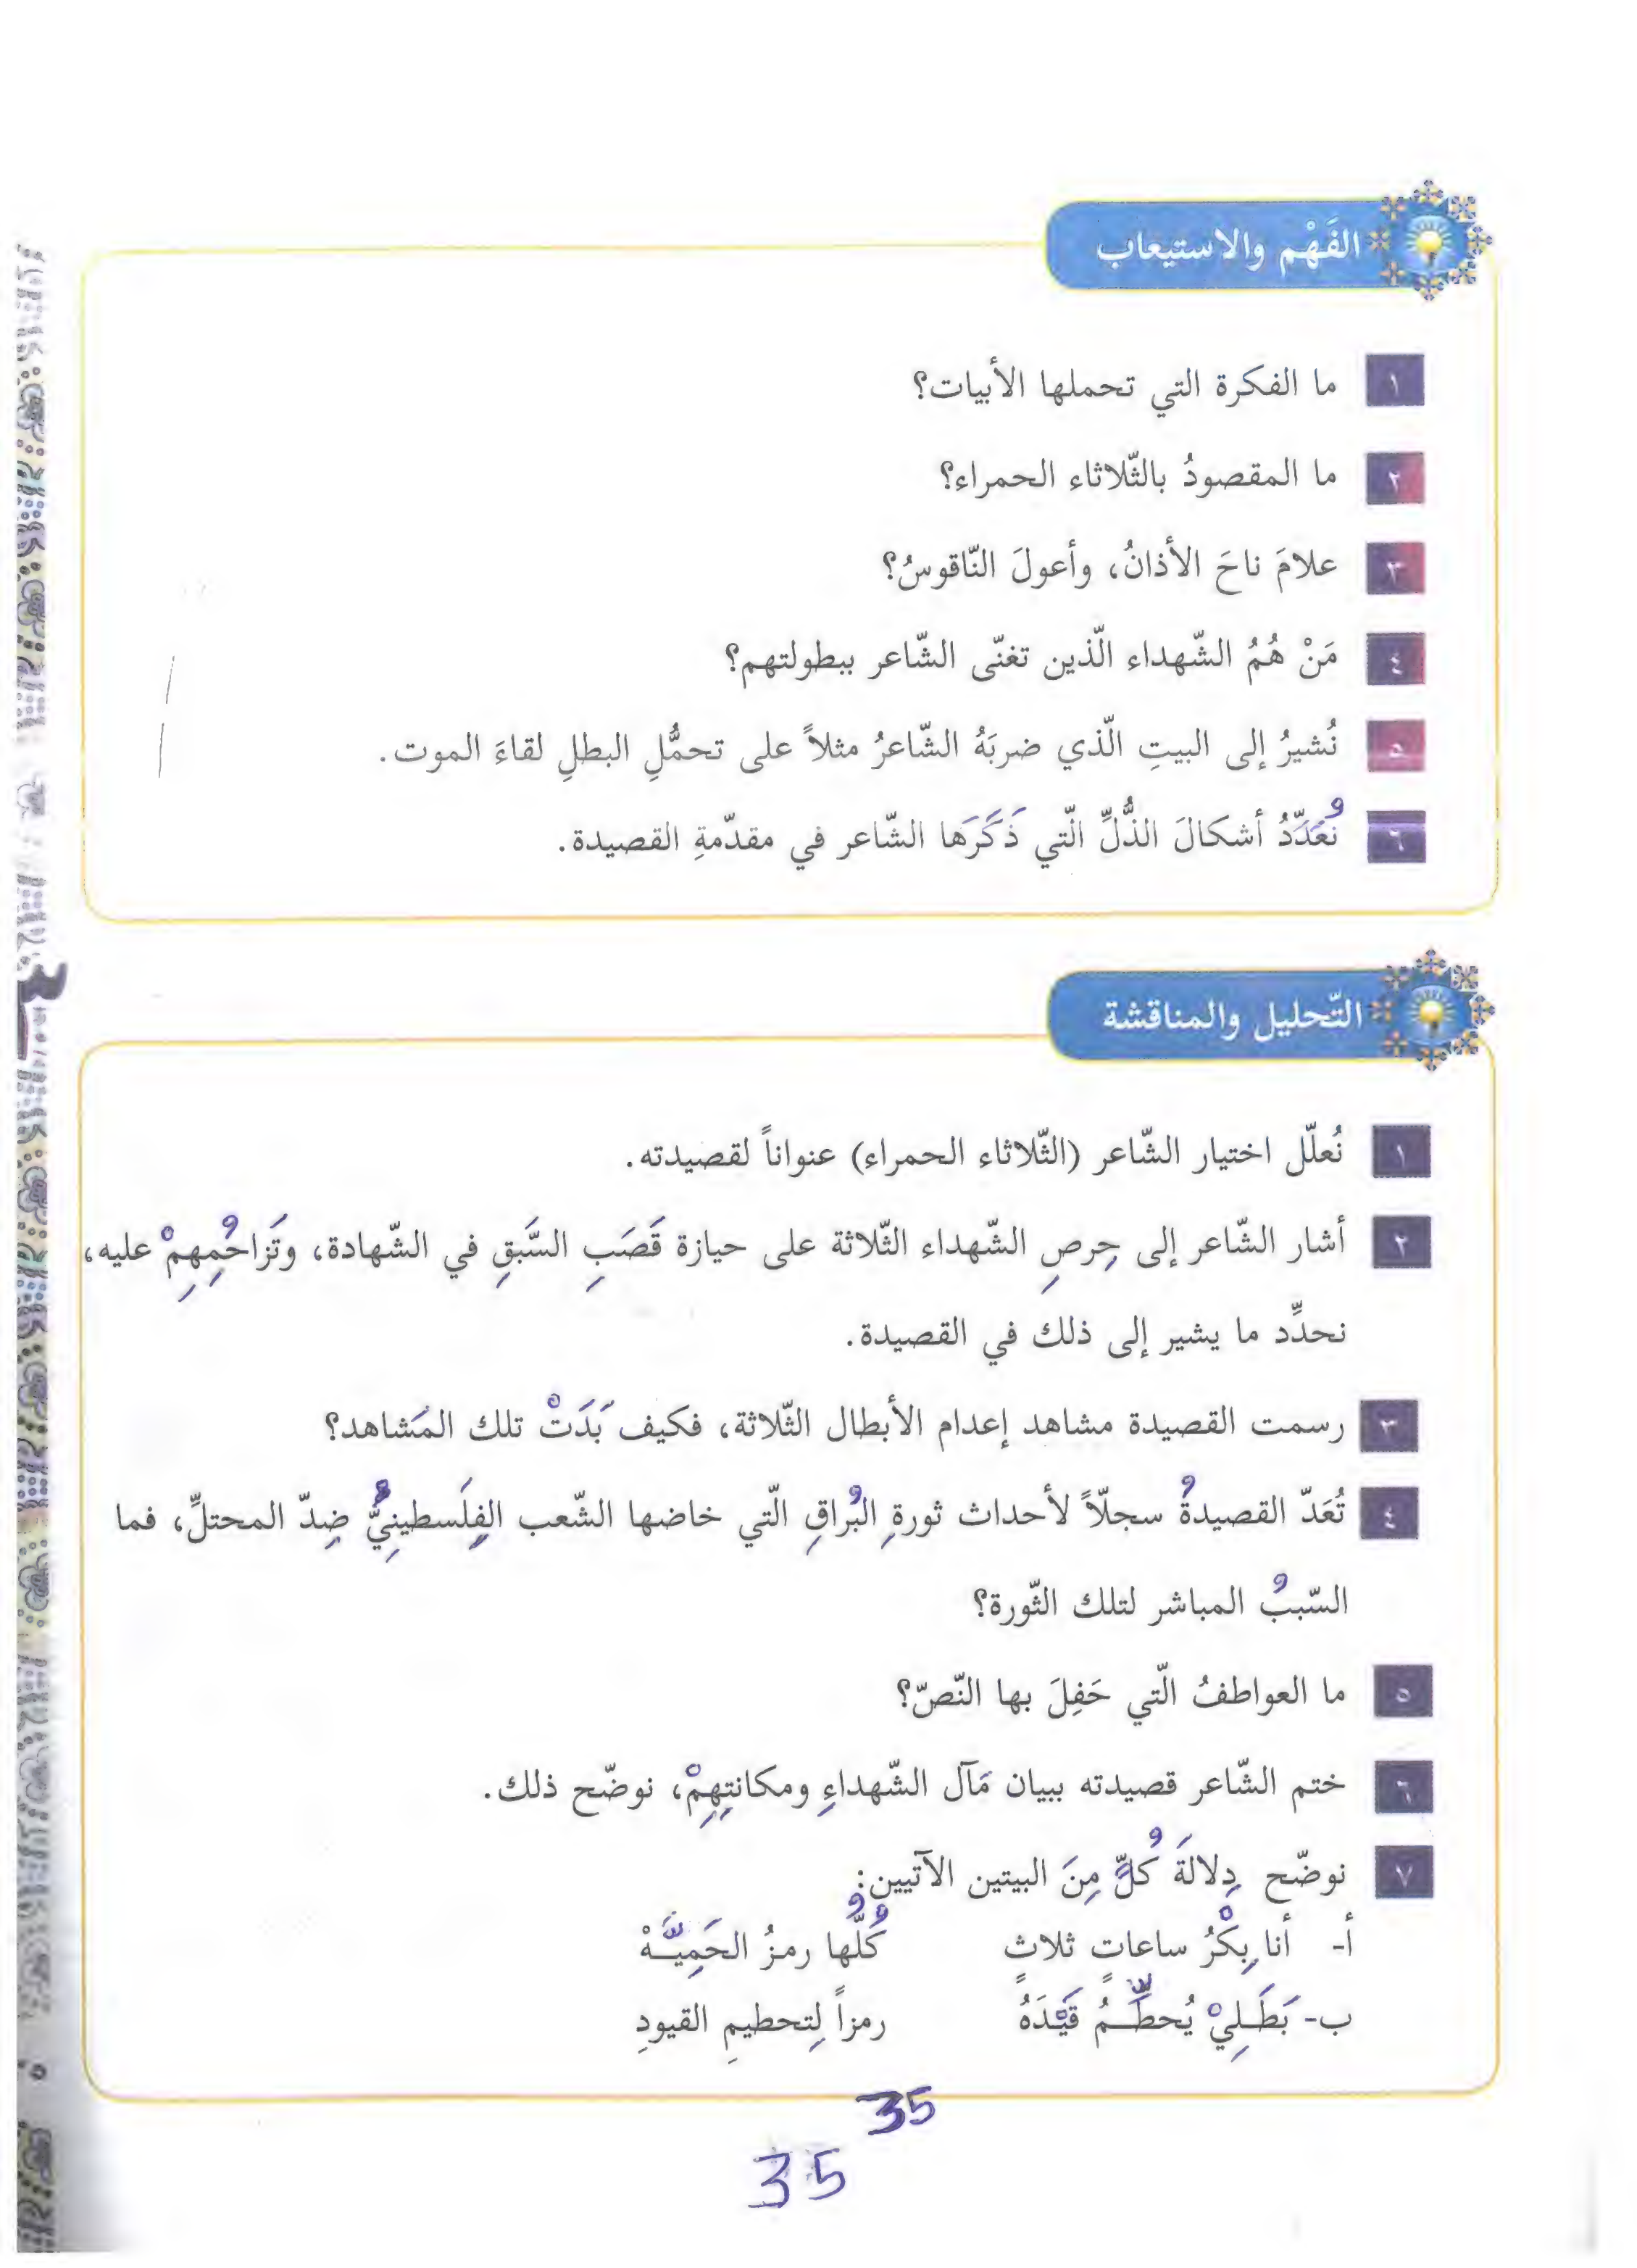 الفَهْم والاستيعاب
١ ما الفكرة التي تحملها الأبيات؟
٢ ما المقصودُ بالثّلاثاء الحمراء؟
٣ علامَ ناحَ الأذانُ، وأعولَ النّاقوسُ؟
٤ مَنْ هُمُ الشّهداء الّذين تغنّى الشّاعر ببطولتهم؟
٥ نُشيرُ إلى البيتِ الّذي ضربَهُ الشّاعرُ مثلاً على تحمُّلِ البطلِ لقاءَ الموت.
٦ نُعَدّدُ أشكالَ الذُّلِّ الّتي ذَكَرَها الشّاعر في مقدّمةِ القصيدة.
التّحليل والمناقشة
١ نُعلّل اختيار الشّاعر (الثّلاثاء الحمراء) عنواناً لقصيدته.
٢ أشار الشّاعر إلى حِرصِ الشّهداء الثّلاثة على حيازة قَصَبِ السَّبقِ في الشّهادة، وتَزاحُمِهِمْ عليه،
نحدِّد ما يشير إلى ذلك في القصيدة.
٣ رسمت القصيدة مشاهد إعدام الأبطال الثّلاثة، فكيف بَدَتْ تلك المَشاهد؟
٤ تُعَدّ القصيدةُ سجلّاً لأحداث ثورةِ البُراقِ الّتي خاضها الشّعب الفِلَسطينِيُّ ضِدّ المحتلِّ، فما
السّببُ المباشر لتلك الثّورة؟
٥ ما العواطفُ الّتي حَفِلَ بها النّصّ؟
٦ ختم الشّاعر قصيدته ببيان مَآل الشّهداءِ ومكانتِهِمْ، نوضّح ذلك.
٧ نوضّح دِلالةَ كُلٍّ مِنَ البيتين الآتيين:
أ- أنا بِكْرُ ساعاتٍ ثلاثٍ كُلُّها رمزُ الحَمِيَّـهْ
ب- بَطَـلِيْ يُحطِّـمُ قَيْـدَهُ رمزاً لِتحطيمِ القيودِ
35
35